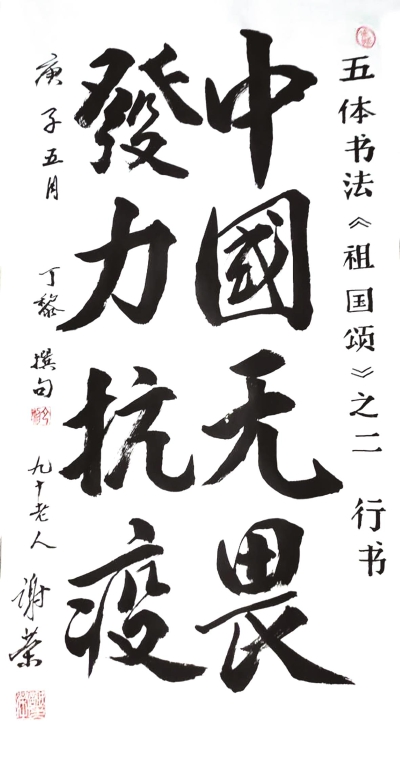 五体书法《祖国颂》之二 行书
中國无畏
發力抗疫
庚子五月 丁黎 撰句 九十老人 谢荣